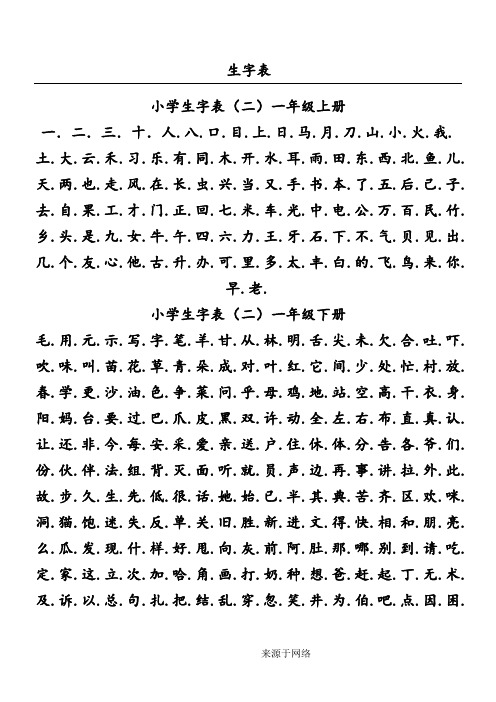 生字表
小学生字表（二）一年级上册
一．二．三．十．人.八.口.目.上.日.马.月.刀.山.小.火.我.
土.大.云.禾.习.乐.有.同.木.开.水.耳.雨.田.东.西.北.鱼.儿.
天.两.也.走.风.在.长.虫.兴.当.又.手.书.本.了.五.后.己.子.
去.自.果.工.才.门.正.回.七.米.车.光.中.电.公.万.百.民.竹.
乡.头.是.九.女.牛.午.四.六.力.王.牙.石.下.不.气.贝.见.出.
几.个.友.心.他.古.升.办.可.里.多.太.丰.白.的.飞.鸟.来.你.
早.老.
小学生字表（二）一年级下册
毛.用.元.示.写.字.笔.羊.甘.从.林.明.舌.尖.未.欠.合.吐.吓.
吹.味.叫.苗.花.草.青.朵.成.对.叶.红.它.间.少.处.忙.村.放.
春.学.更.沙.油.色.争.菜.问.乎.母.鸡.地.站.空.高.干.衣.身.
阳.妈.台.要.过.巴.爪.皮.黑.双.许.动.全.左.右.布.直.真.认.
让.还.非.今.每.安.采.爱.亲.送.户.住.休.体.分.告.各.爷.们.
份.伙.伴.法.组.背.灭.面.听.就.员.声.边.再.事.讲.拉.外.此.
故.步.久.生.先.低.很.话.她.始.已.半.其.典.苦.齐.区.欢.咪.
洞.猫.饱.迷.失.反.单.关.旧.胜.新.进.文.得.快.相.和.朋.亮.
么.瓜.发.现.什.样.好.甩.向.灰.前.阿.肚.那.哪.别.到.请.吃.
定.家.这.立.次.加.哈.角.画.打.奶.种.想.爸.赶.起.丁.无.术.
及.诉.以.总.句.扎.把.结.乱.穿.忽.笑.井.为.伯.吧.点.因.困.
来源于网络